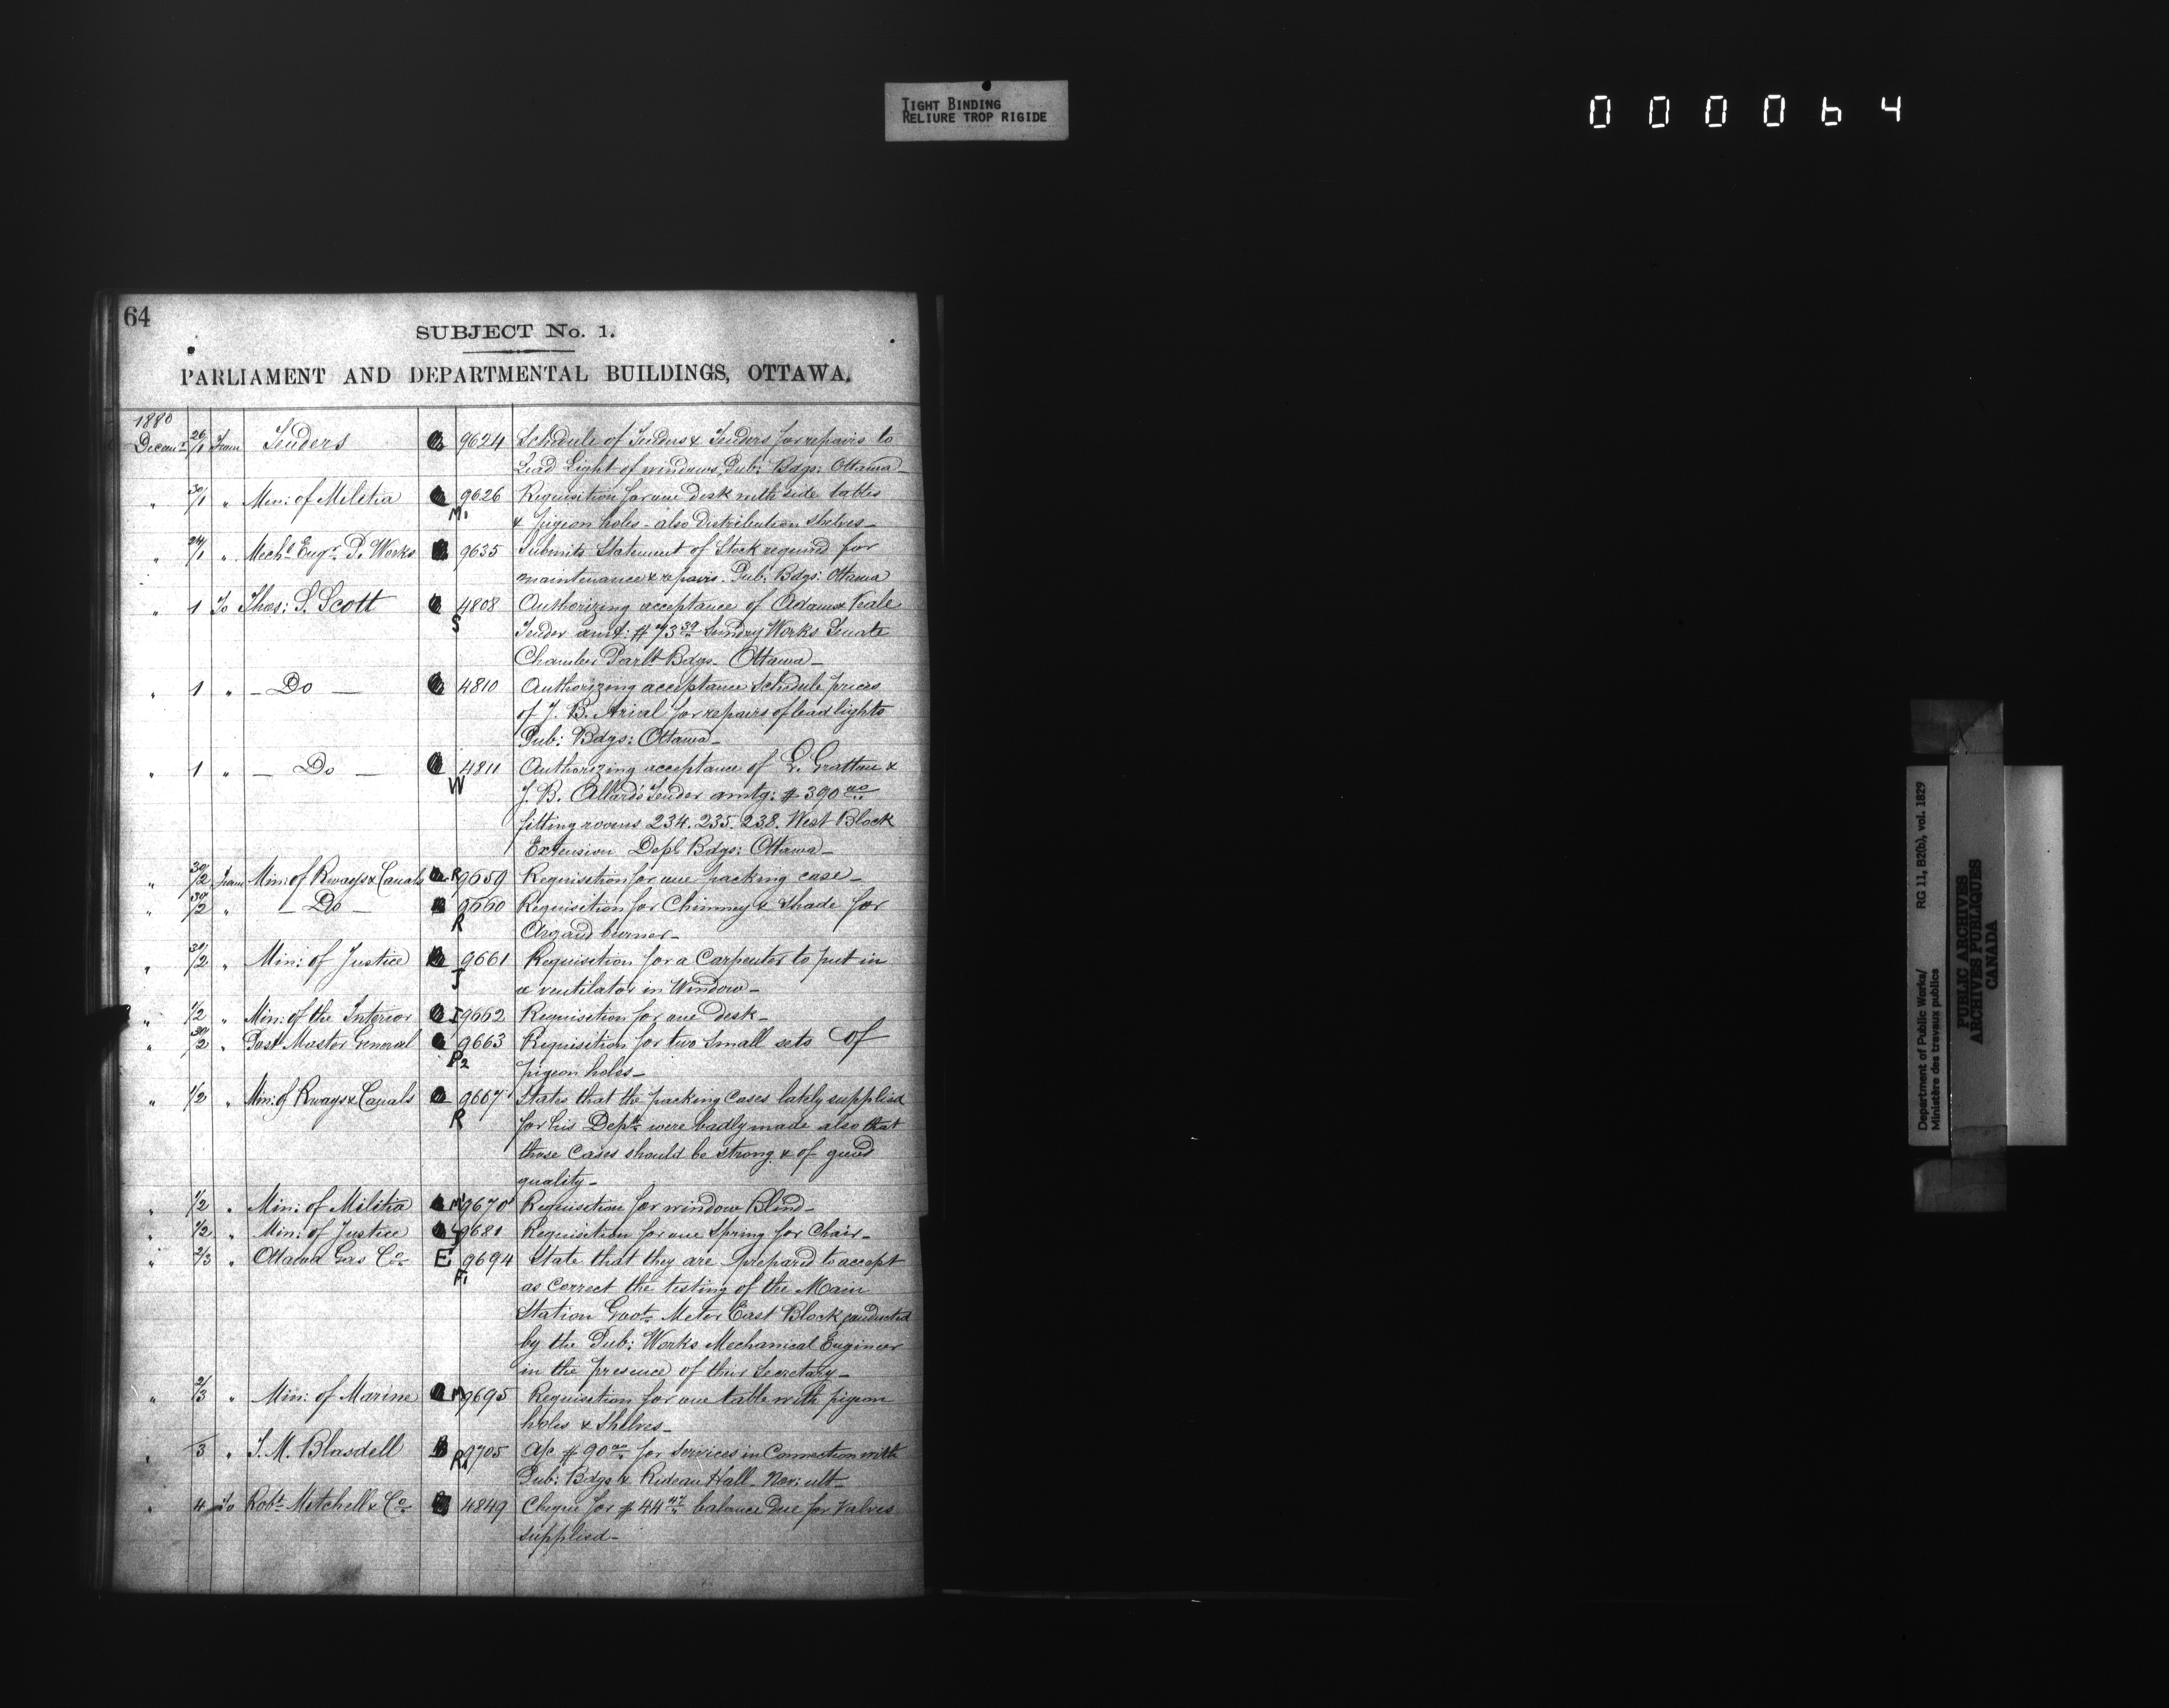 TIGHT BINDING
RELIURE TROP RIGIDE
000064
64
SUBJECT No. 1.
PARLIAMENT AND DEPARTMENTAL BUILDINGS, OTTAWA.
1880
Decemr 26/1 From Tenders 9624 Schedule of Tenders & Tenders for repairs to
Lead Light of windows, Pub: Bdgs: Ottawa
" 30/1 " Min: of Militia M1 9626 Requisition for one desk with side tables
& pigeon holes - also distribution shelves
" " Mechl Engr P. Works 9635 Submits Statement of Stock required for
maintenance & repairs. Pub: Bdgs: Ottawa
" 1 To Thos: S. Scott S 4808 Authorizing acceptance of Adam Veale
Tender amt: $ 73 39 Sundry Works Senate
Chamber Parlt Bdgs - Ottawa
" 1 " Do 4810 Authorizing acceptance Schedule prices
of J. B. Arial for repairs of lead lights
Pub: Bdgs: Ottawa
" 1 " Do W 4811 Authorizing acceptance of G. Gratton &
J. B. Allard's Tender amtg: $ 390 00
fitting rooms 234. 235. 238. West Block
Extension Depl Bdgs: Ottawa
" 30/2 From Min: of Rways & Canals R 9659 Requisition for one packing case
" 30/2 " Do R 9660 Requisition for Chimney & Shade for
Argand burner
" 30/2 " Min: of Justice J 9661 Requisition for a Carpenter to put in
a ventilator in Window
" 1/2 " Min: of the Interior I 9662 Requisition for one desk
" 30/2 " Post Master General P2 9663 Requisition for two small sets of
pigeon holes
" 1/2 " Min: of Rways & Canals R 9667 States that the packing cases lately supplied
for his Dept. were badly made also that
those cases should be strong & of good
quality
" 1/2 " Min: of Militia M1 9670 Requisition for window Blind
" 1/2 " Min: of Justice J 9681 Requisition for one Spring for Chair
" 2/3 " Ottawa Gas Co E F1 9694 State that they are prepared to accept
as correct the testing of the Main
Station Govt. Meter East Block conducted
by the Pub: Works Mechanical Engineer
in the presence of their Secretary
" 2/3 " Min: of Marine M 9695 Requisition for one table with pigeon
holes & shelves
" 3 " T. M. Blasdell 9705 A/c $ 90 00 for services in Connection with
Pub: Bdgs & Rideau Hall - Nov: ult
" 4 To Robt Mitchell & Co 4849 Cheque for $ 44 balance due for Valves
supplied
Department of Public Works/ RG 11, B2(b), vol. 1829
Ministère des travaux publics
PUBLIC ARCHIVES
ARCHIVES PUBLIQUES
CANADA